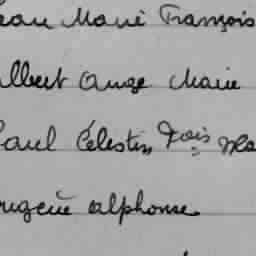 Jean Marie François
Albert Ange Marie
Paul Célestin Fois Ma
Eugène Alphonse